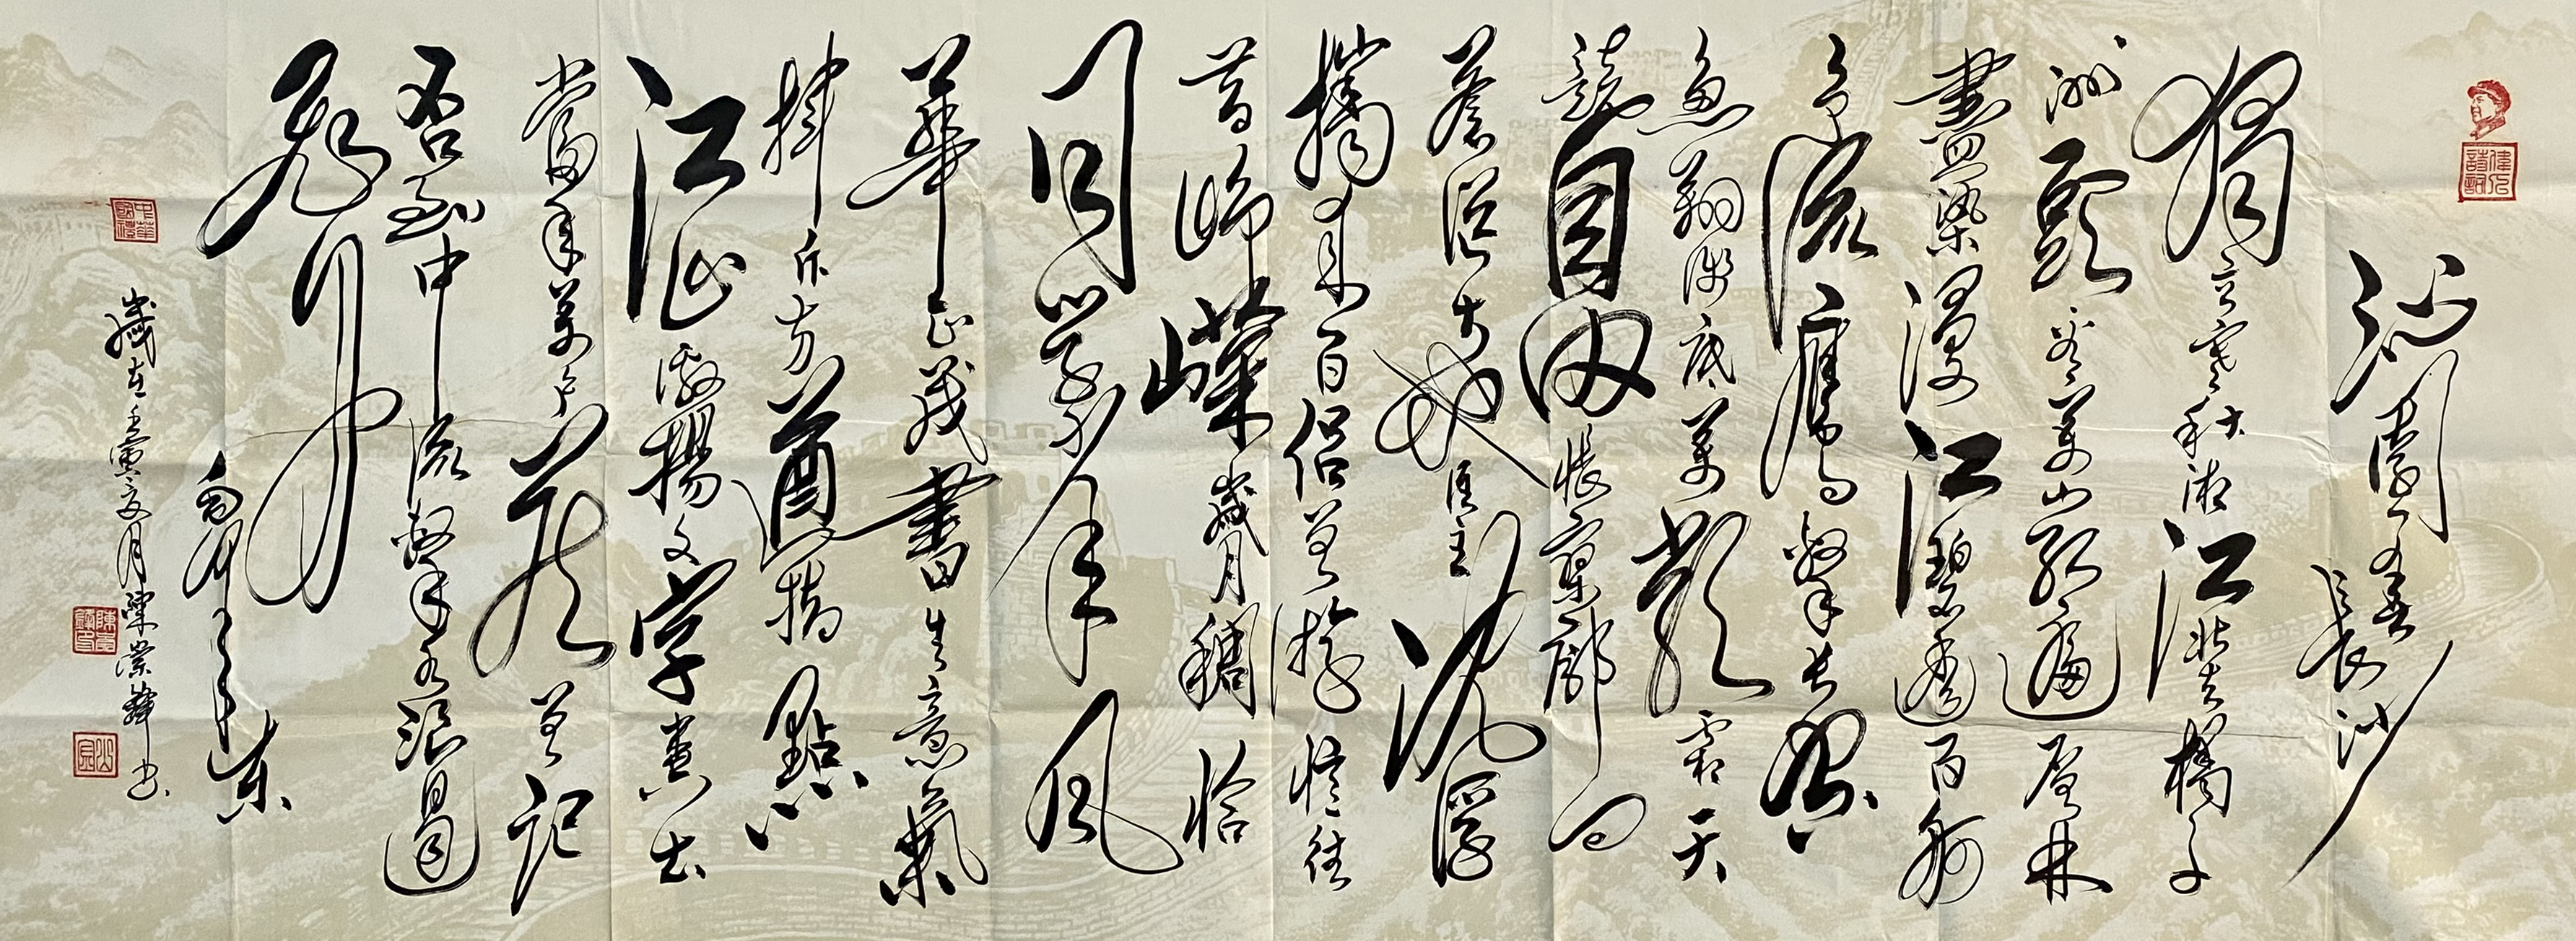 沁園春長沙
獨立寒秋湘江北去橘子
洲頭看萬山紅遍層林
盡染漫江碧透百舸
爭流鷹擊長空
魚翔淺底萬類霜天
競自由悵寥廓問
蒼茫大地誰主沉浮
攜來百侣曾遊憶往
昔崢嶸歲月稠恰
同學少年風
華正茂書生意氣
揮斥方遒指點
江山激揚文字糞土
當年萬户侯曾記
否到中流擊水浪遏
飛舟
歲在壬寅夏月
偉人詩詞
中華國禮